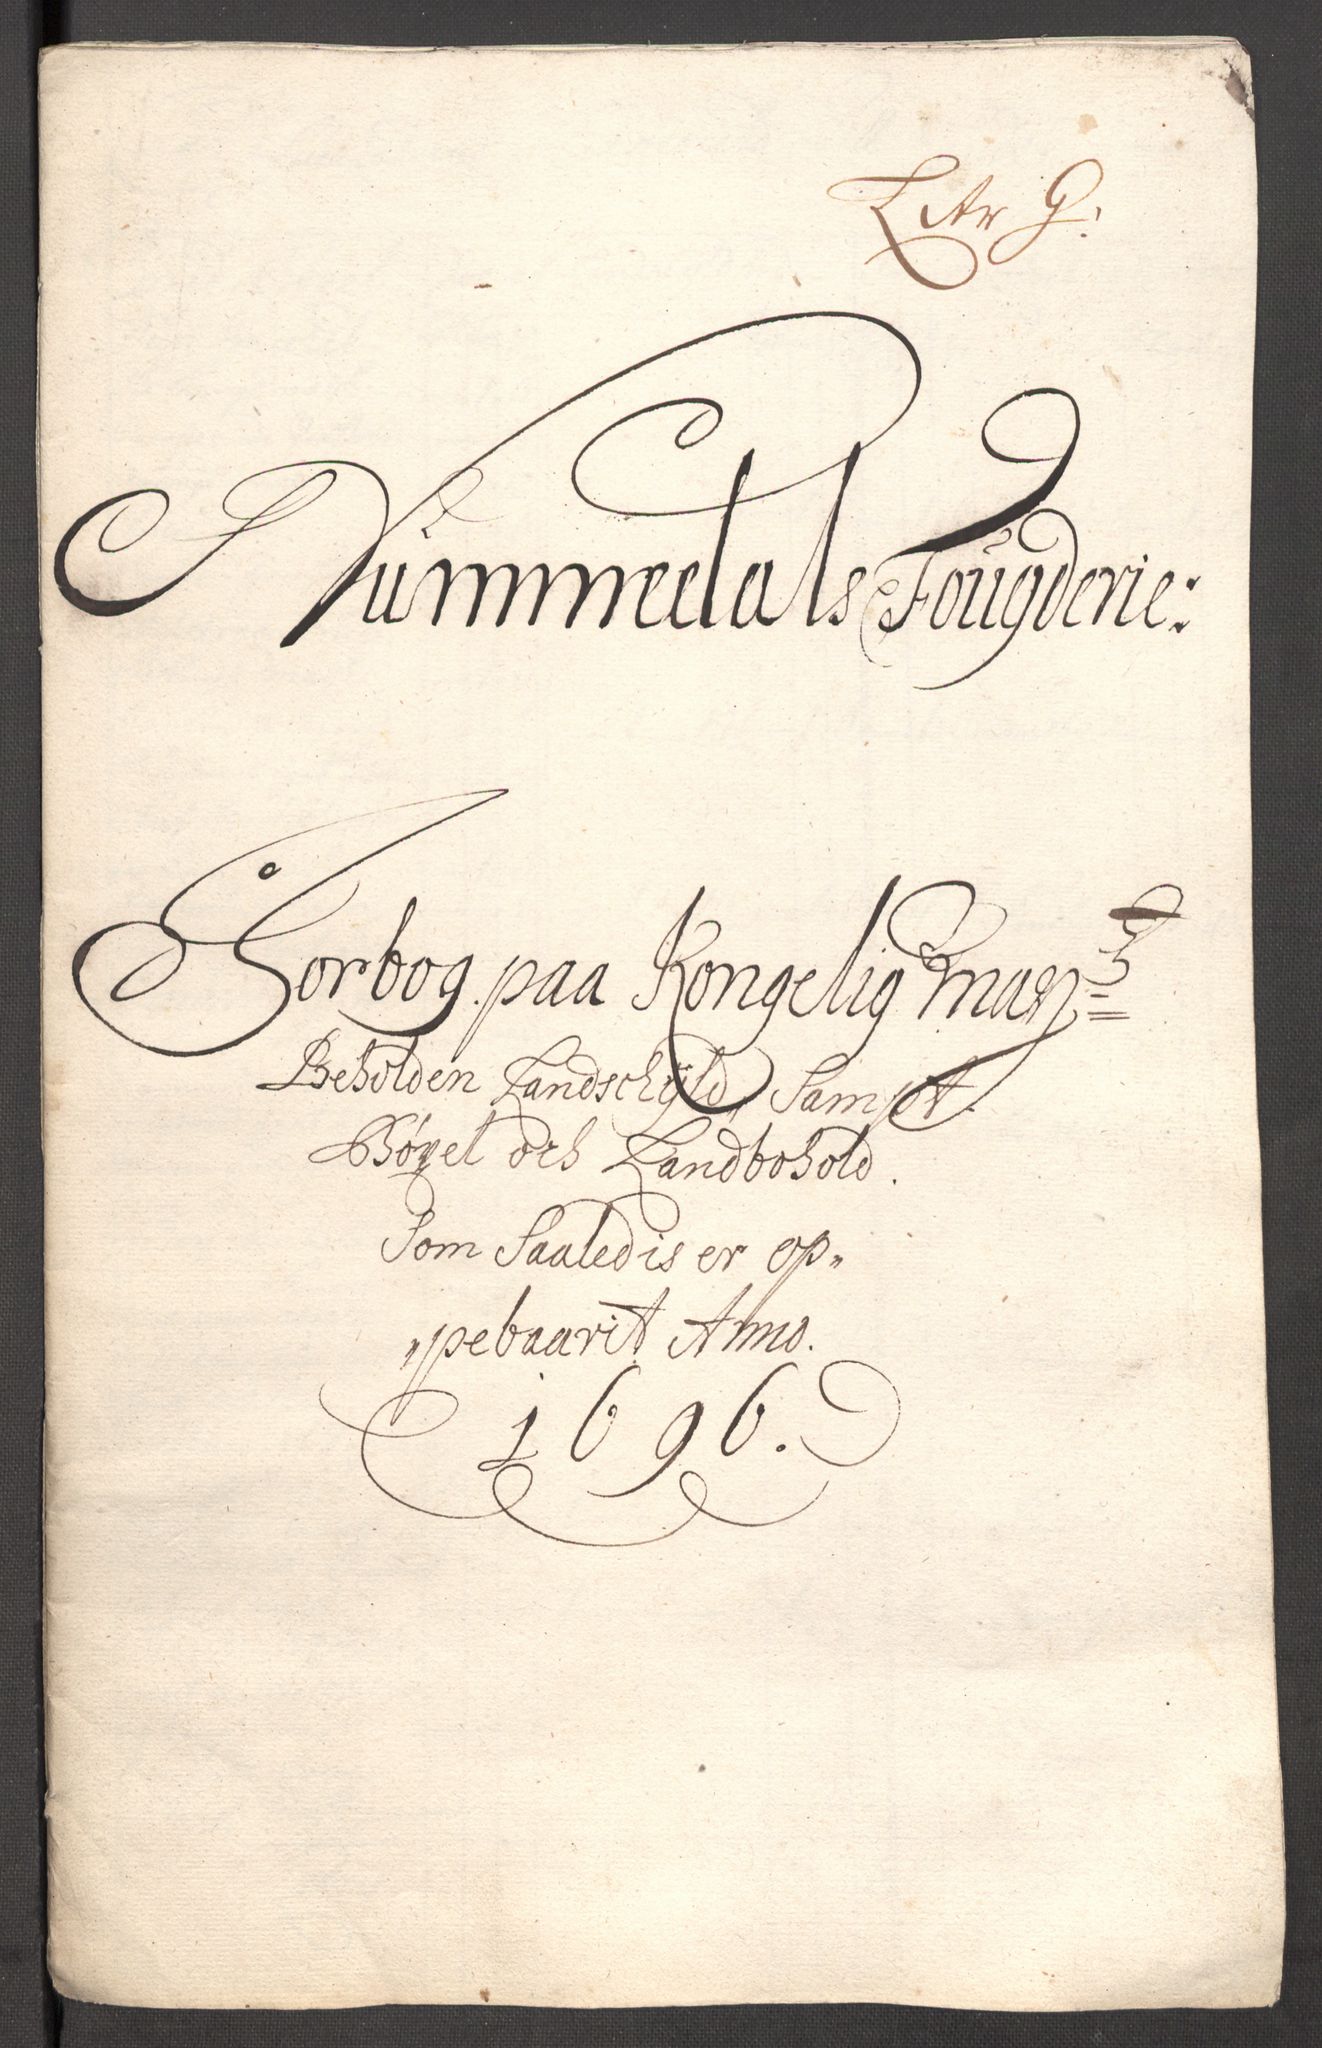 Litr G.
Nummedals Fougderie:
Jorbog paa Kongelig May:ts
Beholden Landschÿld, Sampt
Bøxel och Landbohold.
Som Saaledis er op„
„pebaarit Anno.
1696.